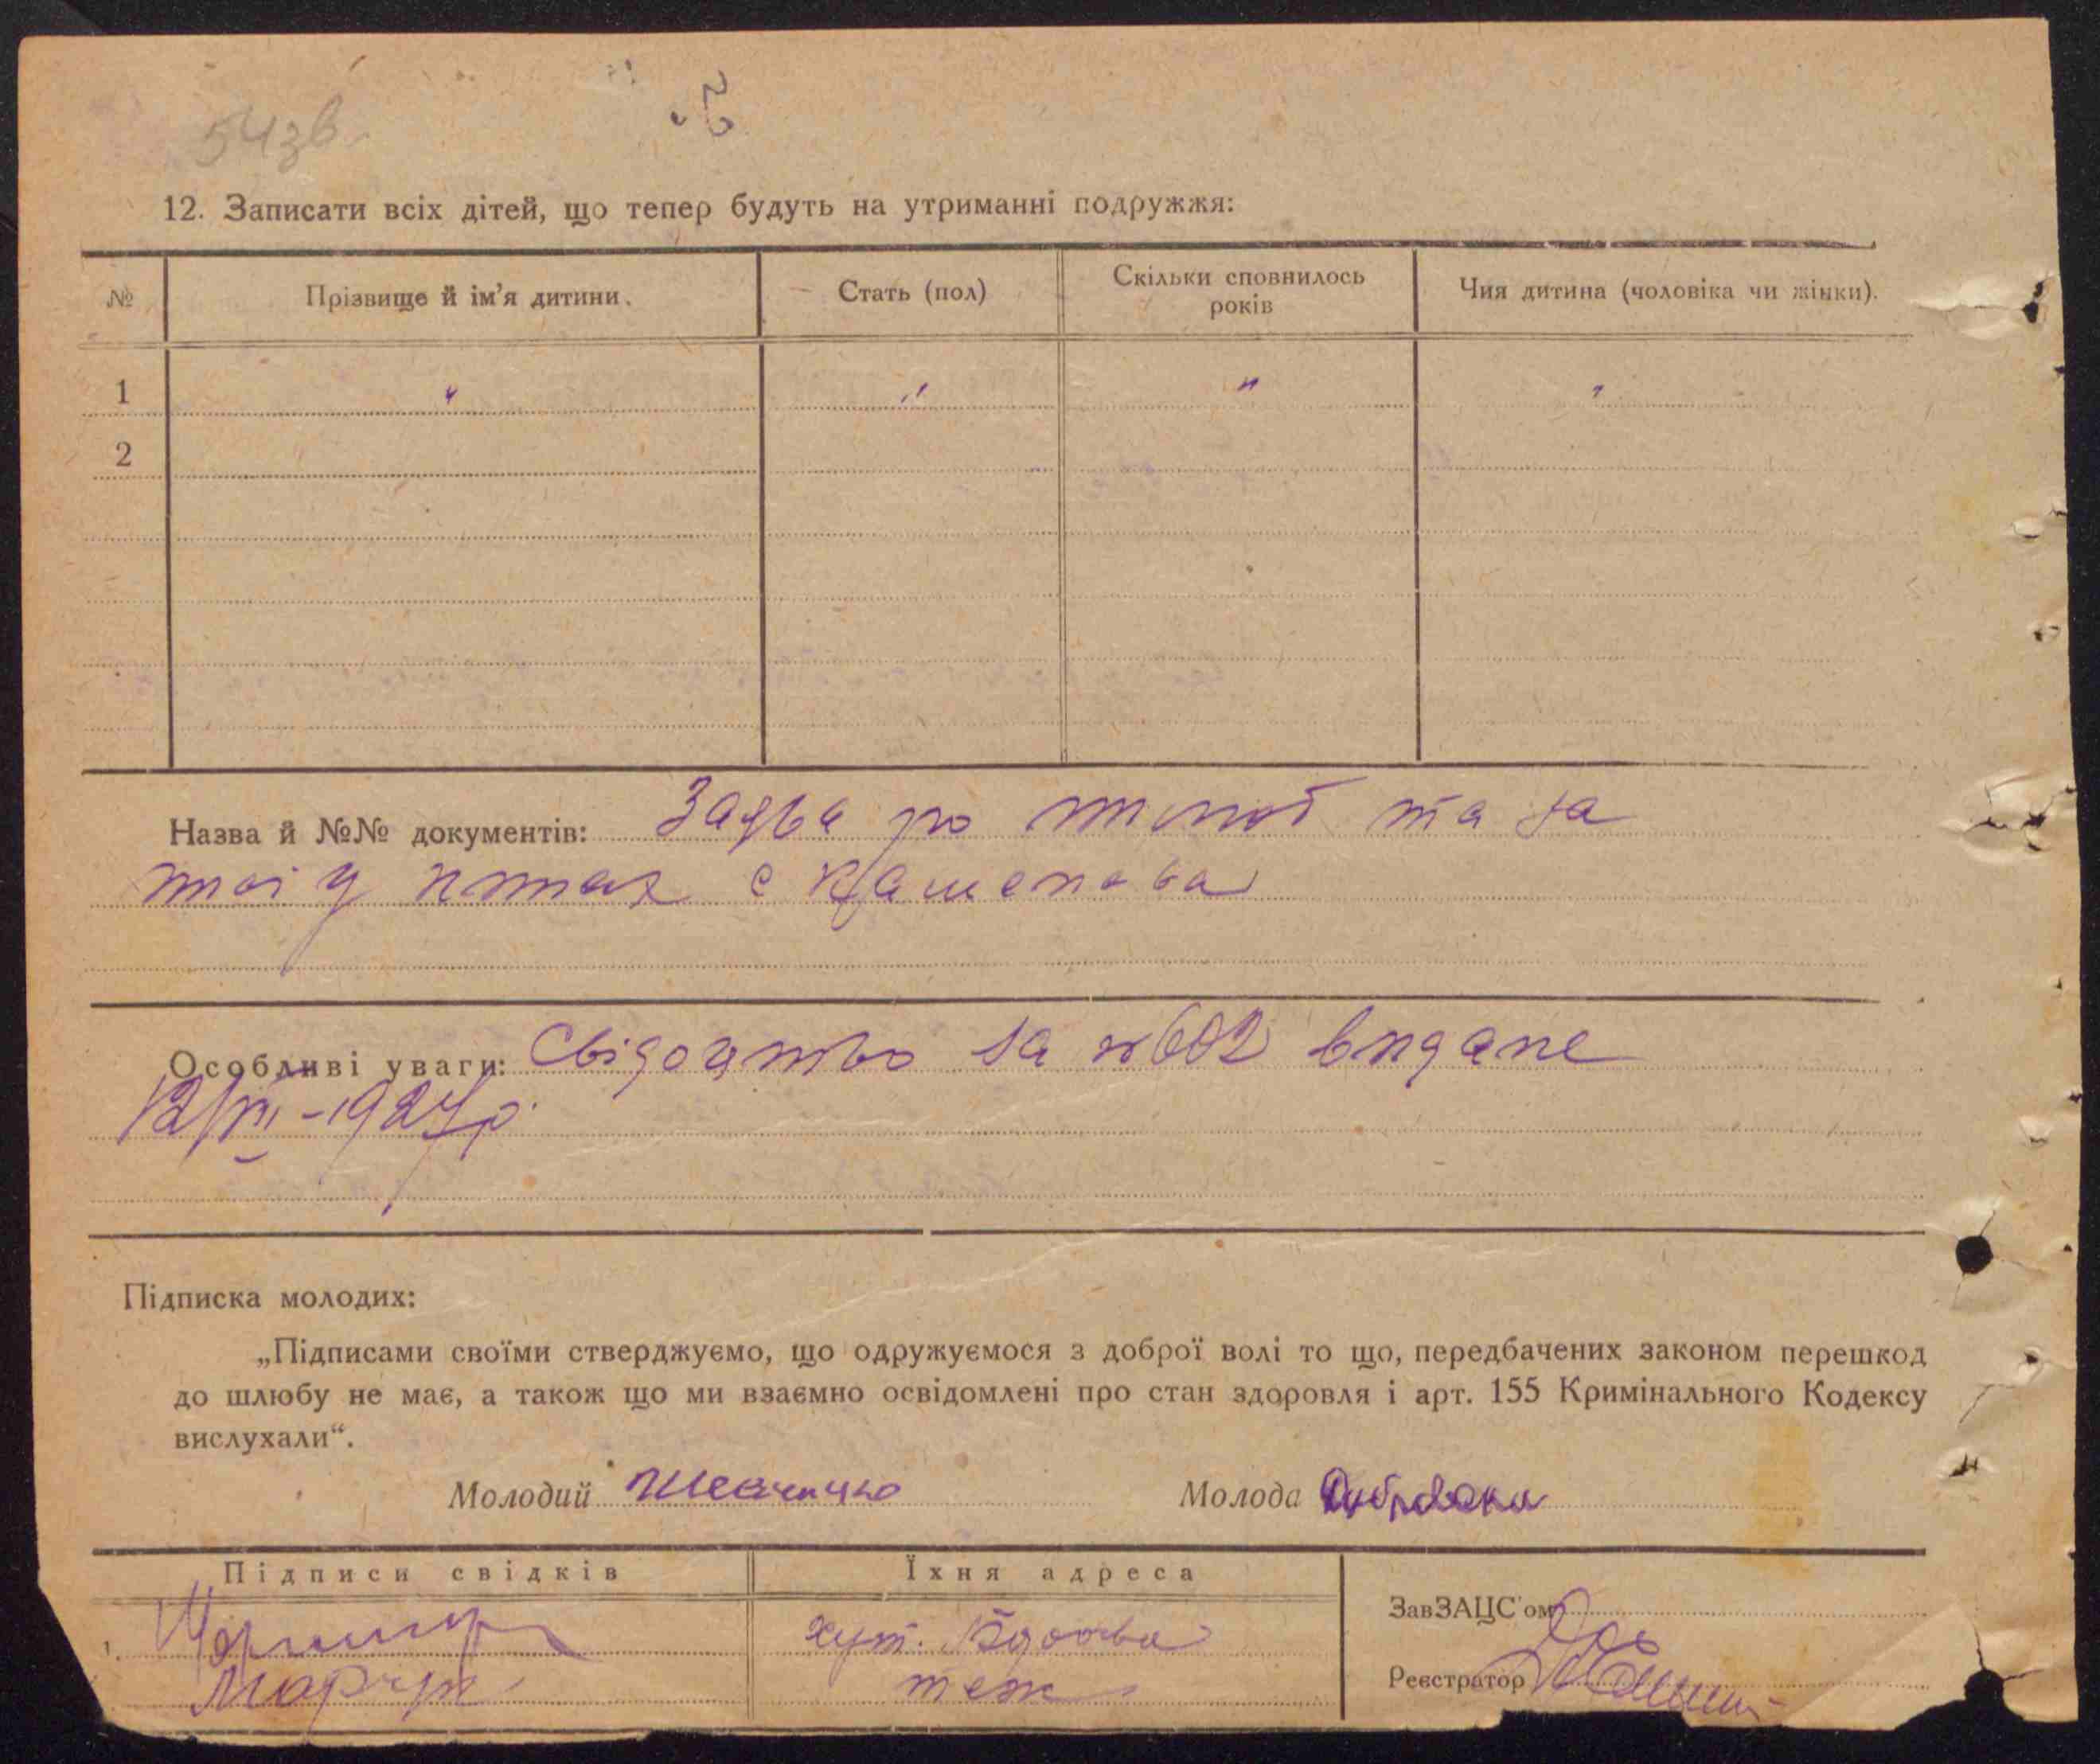 54зв
12. Записати всіх дітей, що тепер будуть на утриманні подружжя:
№ Прізвище й ім’я дитини. Стать (пол) Скільки сповнилось років Чия дитина (чоловіка чи жінки).
1 " " " "
2
Назва й №№ документів: Заява про шлюб та
с
Особливі уваги: Свідоцтво за №602 видане
12/VII-1927р.
Підписка молодих:
„Підписами своїми стверджуємо, що одружуємося з доброї волі то що, передбачених законом перешкод
до шлюбу не має, а також що ми взаємно освідомлені про стан здоровля і арт. 155 Кримінального Кодексу
вислухали“.
Молодий Молода
Підписи свідків Їхня адреса
ЗавЗАЦС'ом
1. хут.
Марчук теж
Реєстратор